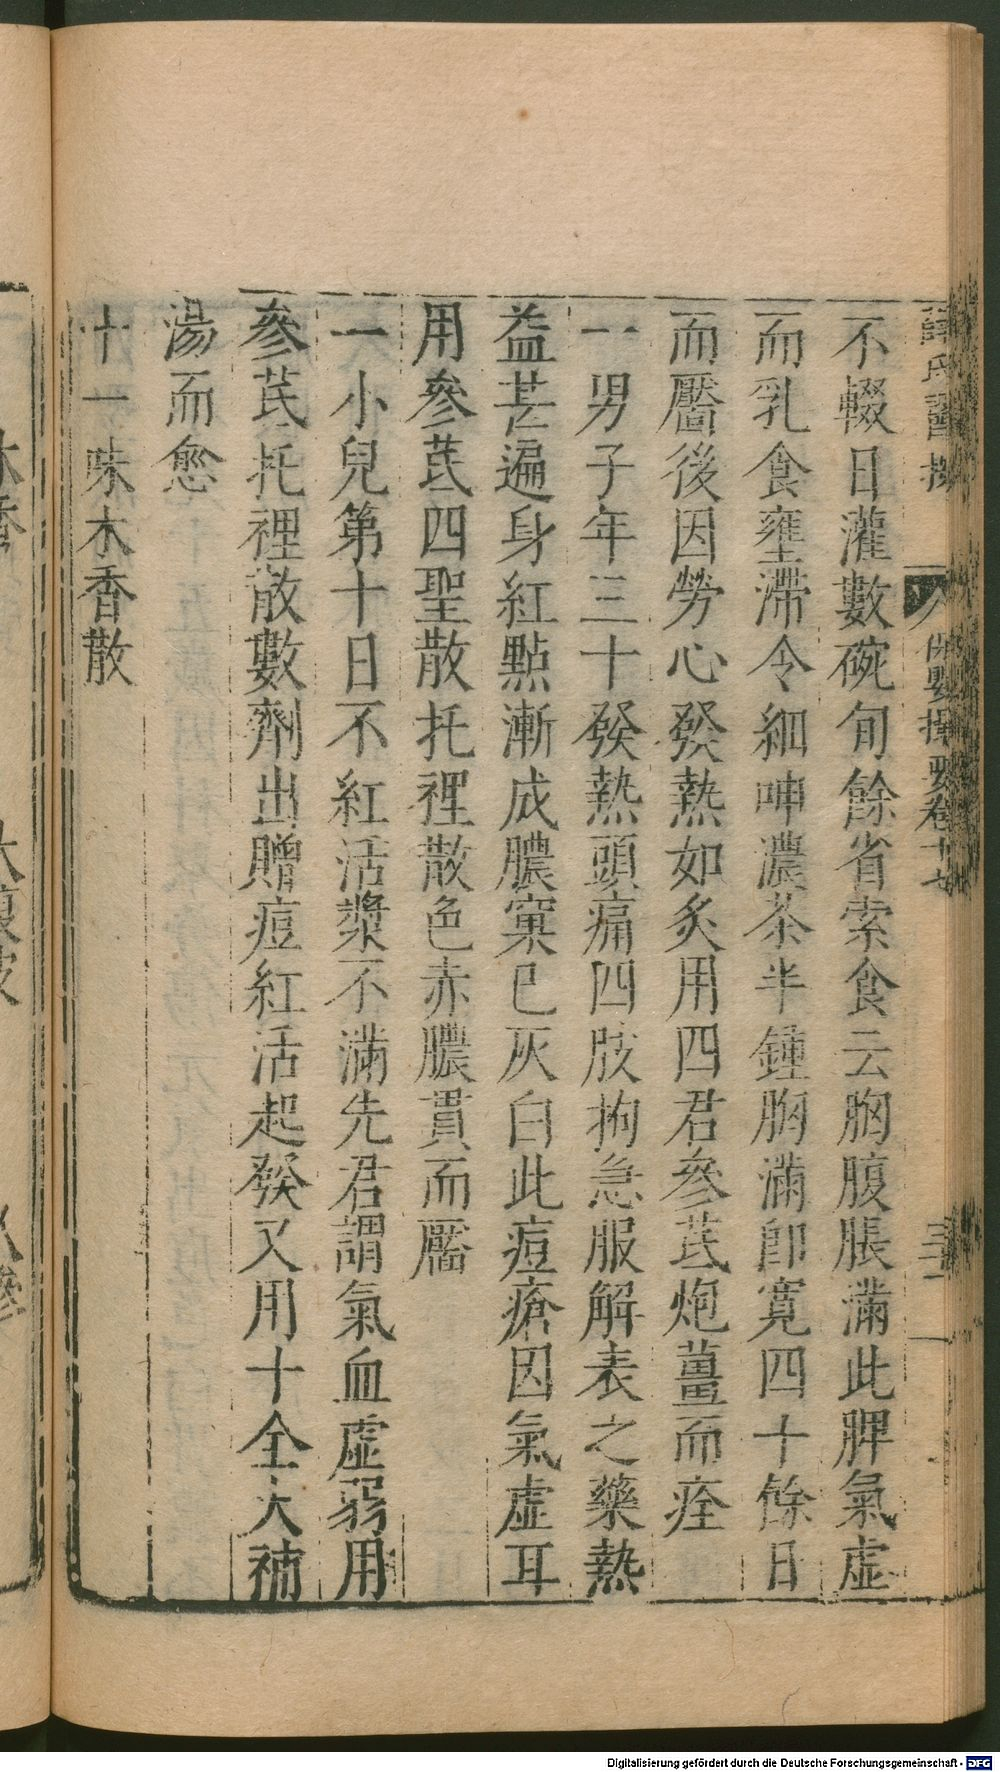 薛氏醫按
保嬰撮要卷十七
不輟日灌數碗旬餘省索食云胸腹脹滿此脾氣虛
而乳食壅滯令細呻濃茶半鍾胸滿卽寬四十餘日
而靨後因勞心發熱如炙用四君參芪炮薑而痊
一男子年三十發熱頭痛四肢拘急服解表之藥熱
益甚遍身紅點漸成膿窠已灰白此痘瘡因氣虛耳
用參芪四聖散托裡散色赤膿貫而靨
一小兒第十日不紅活漿不滿先君謂氣血虛弱用
參芪托裡散數劑出贈痘紅活起發又用十全大補
湯而愈
十一味木香散
Digitalisierung gefördert durch die Deutsche Forschungsgemeinschaft - DFG